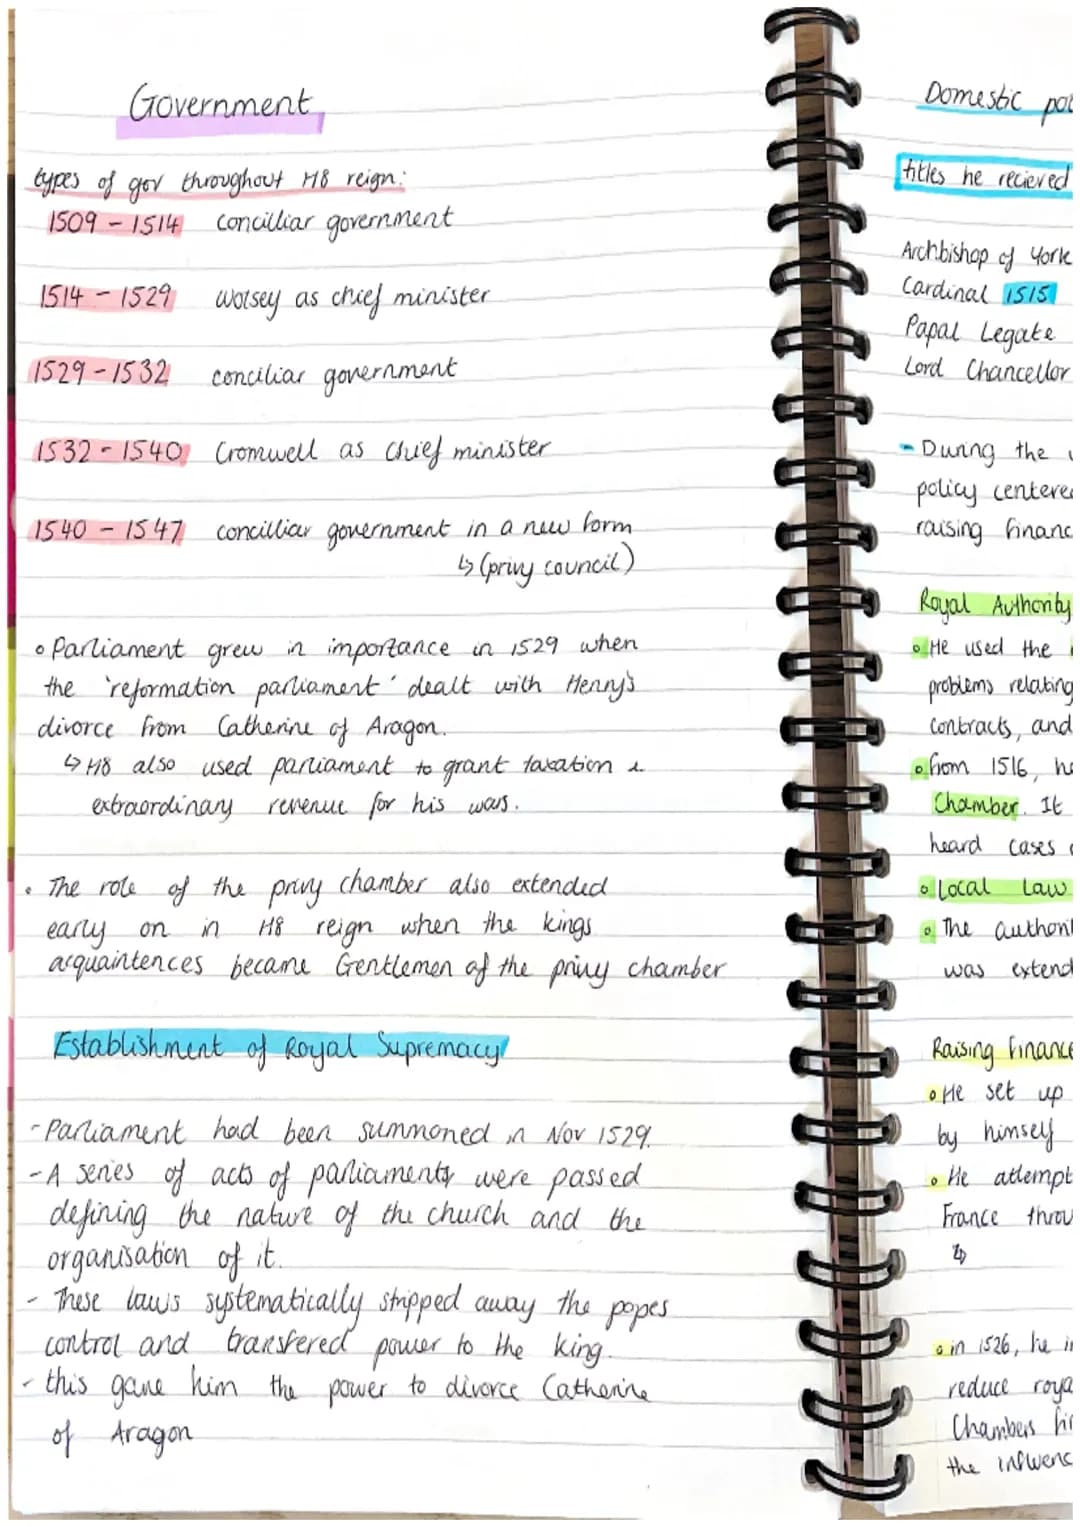 Government
types of gov throughout H8 reign:
1509 - 1514 concilliar government
1514 - 1529 Wolsey as chief minister
1529 - 1532 conciliar government
1532 - 1540 Cromwell as chief minister
1540 - 1547 concilliar government in a new form
↳ (privy council)
• Parliament grew in importance in 1529 when
the 'reformation parliament' dealt with Henry's
divorce from Catherine of Aragon.
↳ H8 also used parliament to grant taxation &
extraordinary revenue for his wars.
• The role of the privy chamber also extended
early on in H8 reign when the kings
acquaintences became Gentlemen of the privy chamber
Establishment of Royal Supremacy
- Parliament had been summoned in Nov 1529.
- A series of acts of parliaments were passed
defining the nature of the church and the
organisation of it.
- These laws systematically stripped away the popes
control and transfered power to the king.
- this gave him the power to divorce Catherine
of Aragon
Domestic pol
titles he recieved
Archbishop of York
Cardinal 1515
Papal Legate
Lord Chancellor
- During the
policy centered
raising financ
Royal Authority
• He used the
problems relating
contracts, and
• from 1516, he
Chamber. It
heard cases
• Local Law
• The authorit
was extend
Raising Finance
• He set up
by himself
• He attempt
France throu
↳
• in 1526, he i
reduce roya
Chambers fi
the influenc